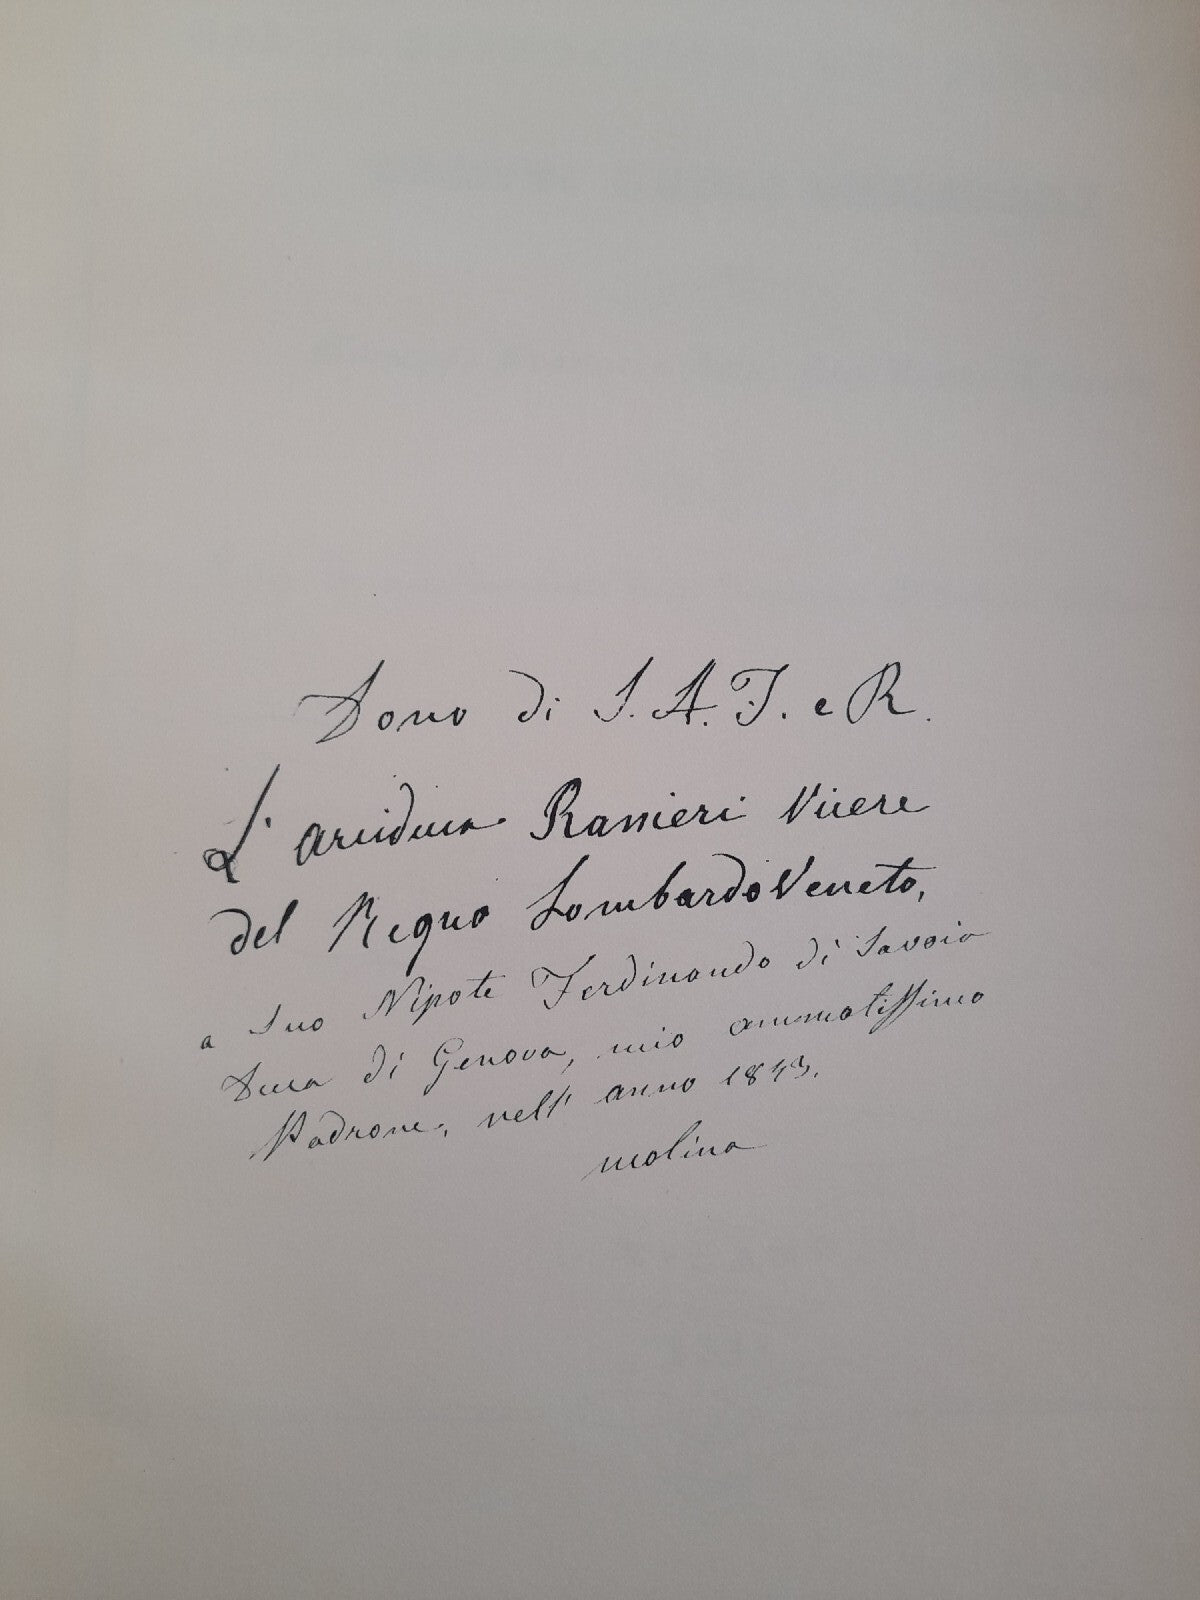 Dono di S. A. I. e R.
L'arciduca Ranieri Vicere
del Regno LombardoVeneto,
a Suo Nipote Ferdinando di Savoia
Duca di Genova, mio ammatissimo
Padrone, nell' anno 1843.
molina